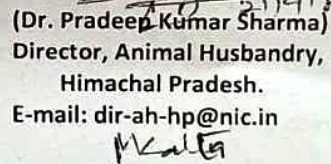 (Dr. Pradeep Kumar Sharma)
Director, Animal Husbandry,
Himachal Pradesh.
E-mail: dir-ah-hp@nic.in